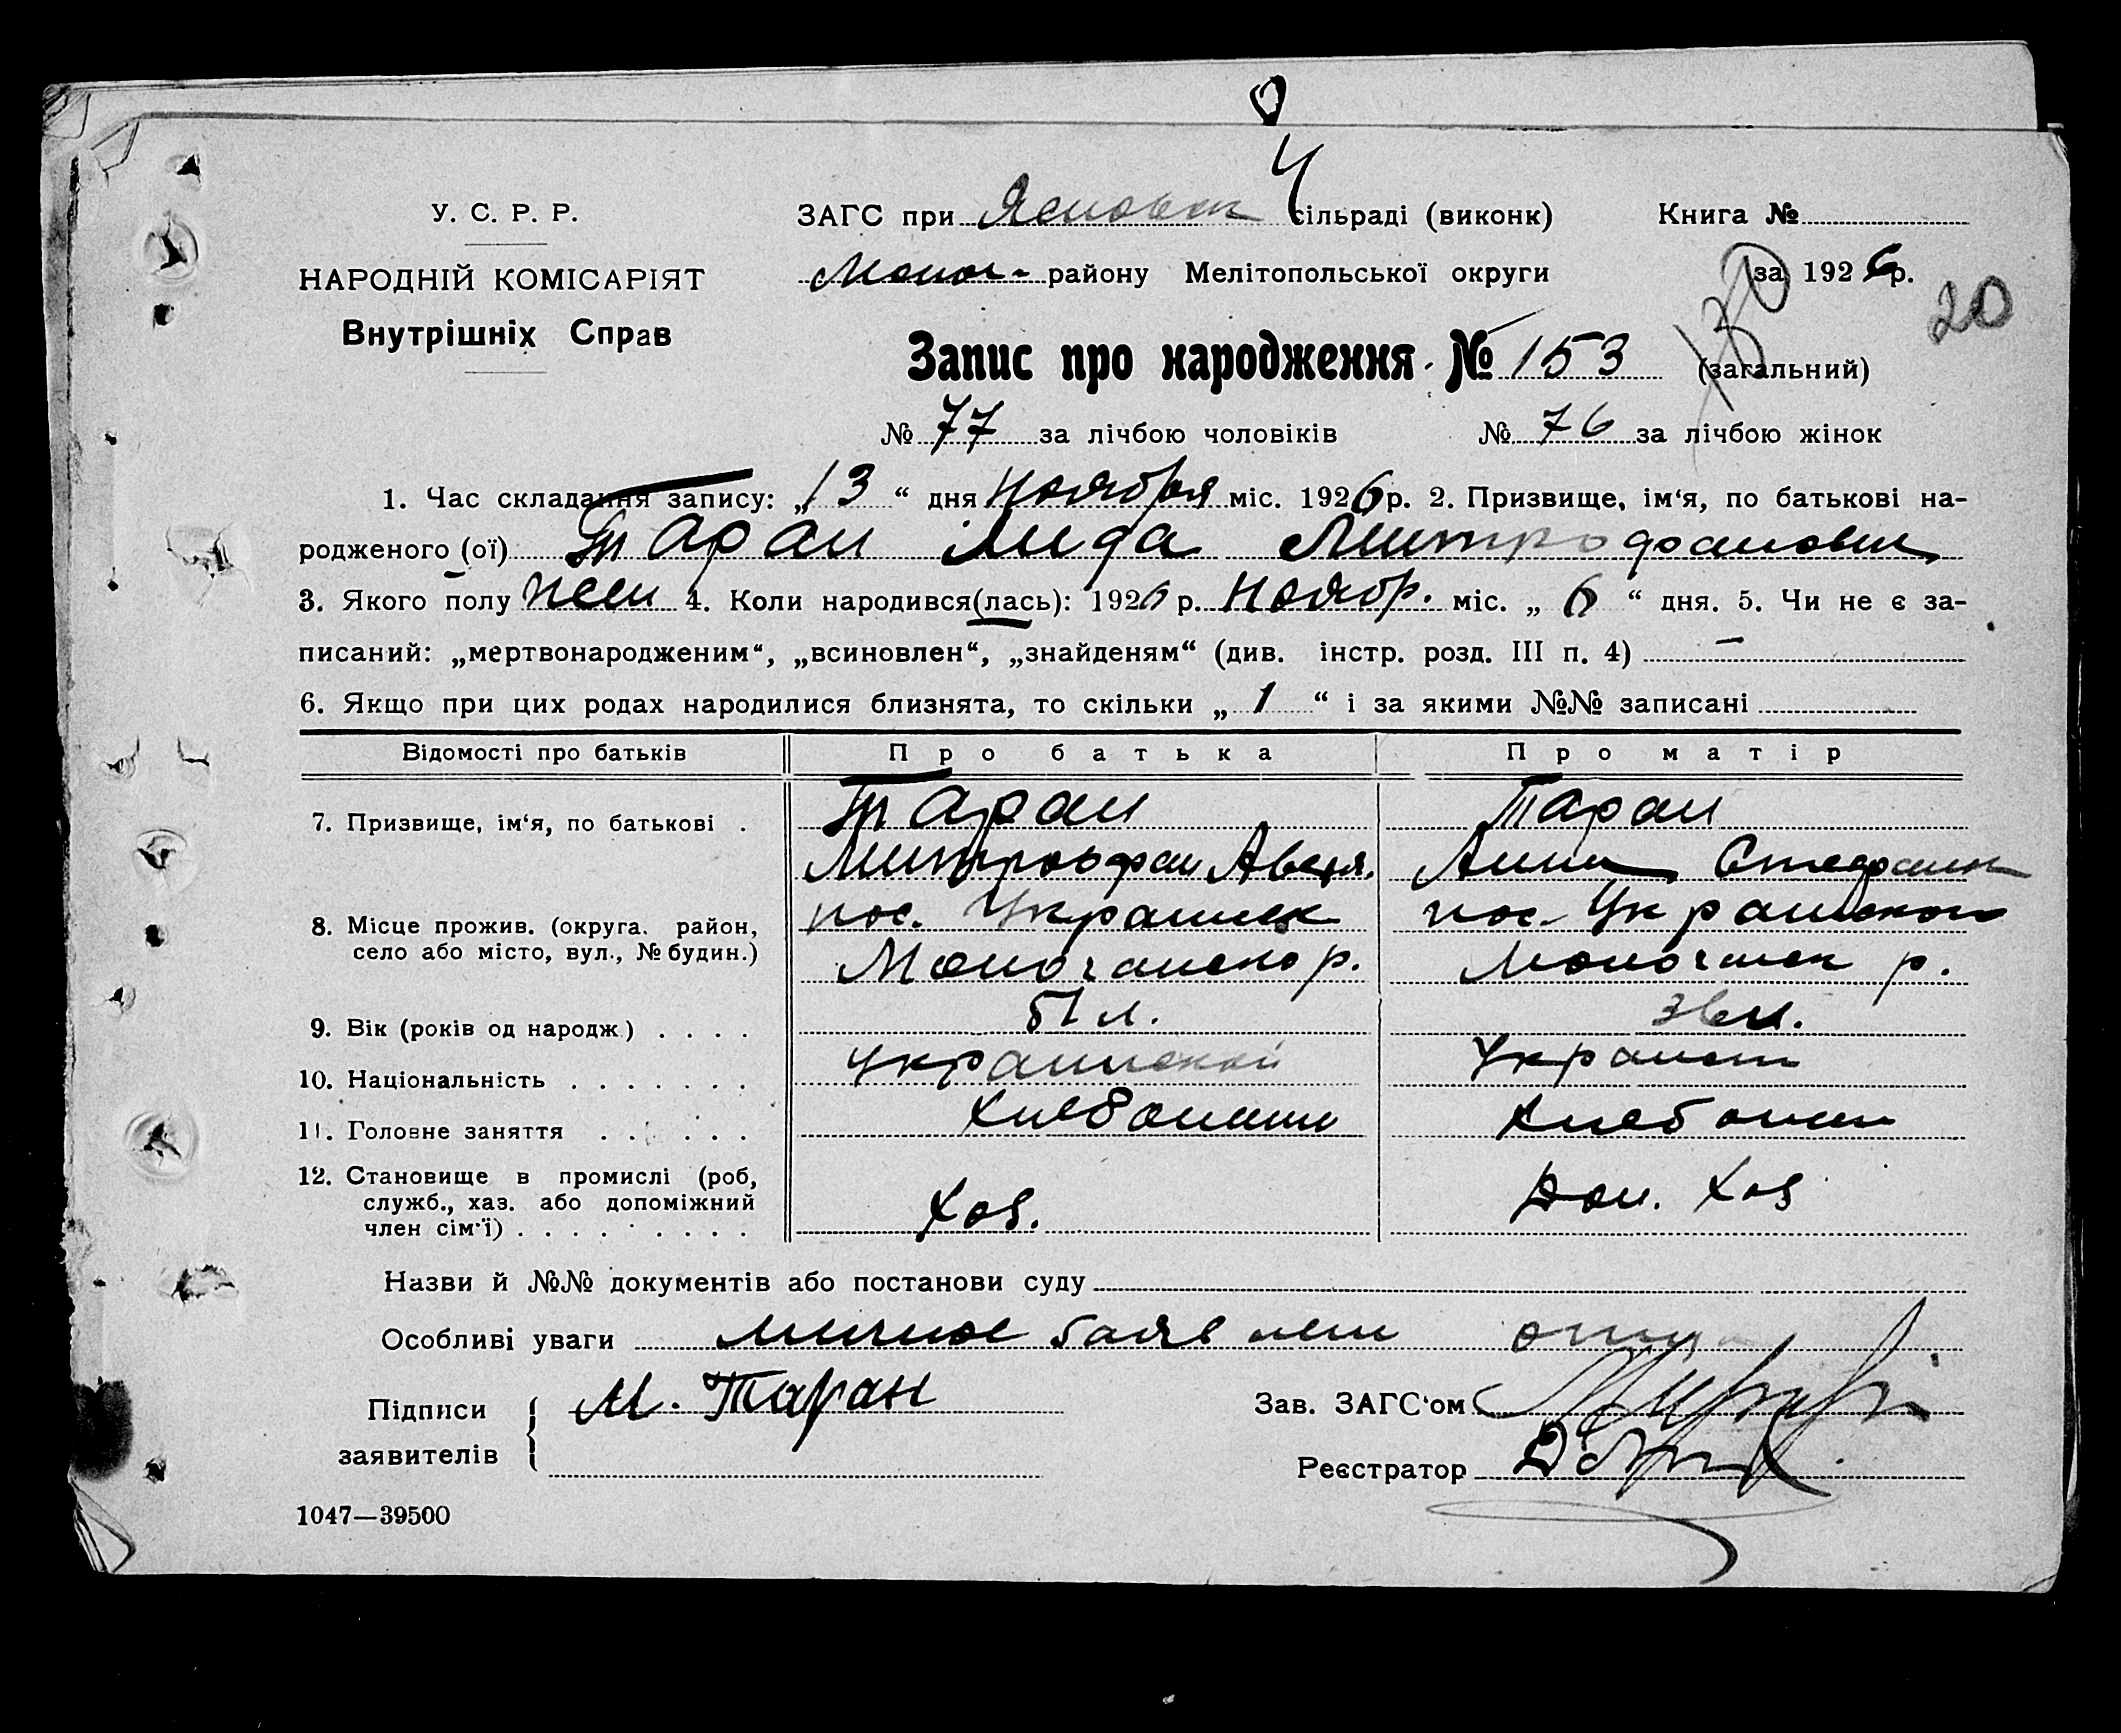 У. С. Р. Р.
НАРОДНІЙ КОМІСАРІЯТ
Внутрішніх Справ
ЗАГС при сільраді (виконк) Книга №
району Мелітопольської округи за 1926 р.
130
20
Запис про народження № 153 (загальний)
№ 77 за лічбою чоловіків № 76 за лічбою жінок
1. Час складання запису: „13“ дня Ноября міс. 1926 р. 2. Призвище, ім‘я, по батькові на-
родженого (ої) Таран Лида Митрофановн
3. Якого полу жен 4. Коли народився(лась): 1926 р. Ноябр. міс. „6“ дня. 5. Чи не є за-
писаний: „мертвонародженим“, „всиновлен“, „знайденям“ (див. інстр. розд. III п. 4) –
6. Якщо при цих родах народилися близнята, то скільки „1“ і за якими №№ записані
Відомості про батьків Про батька Про матір
7. Призвище, ім‘я, по батькові . Таран Таран
Митрофан Анна Стефанов
8. Місце прожив. (округа. район, пос. Украинск пос. Украинском
село або місто, вул., № будин.) р. р.
9. Вік (років од народж.) . . . . 51 л. 36 л.
10. Національність . . . . . . . украинской Украинт
11. Головне заняття . . . . . . Хлебопаш Хлебопаш
12. Становище в промислі (роб,
служб., хаз. або допоміжний Хоз. Хоз
член сім‘ї) . . . . . . . .
Назви й №№ документів або постанови суду
Особливі уваги личное заявлени отца
Підписи М. Таран Зав. ЗАГС‘ом
заявителів Реєстратор
1047—39500